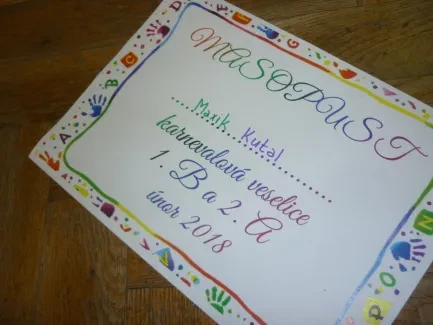 MASOPUST
Maxik Kutal
karnevalová veselice
1. B a 2. A
únor 2018